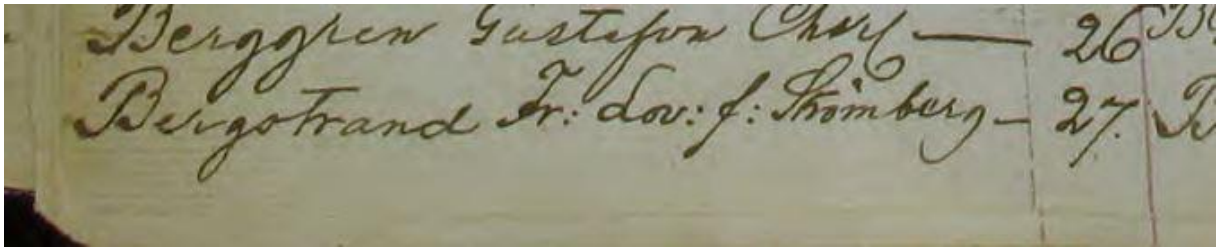 Berggren Gustafva Charl — 26
Bergstrand Fr: Lov: f: Strömberg - 27.